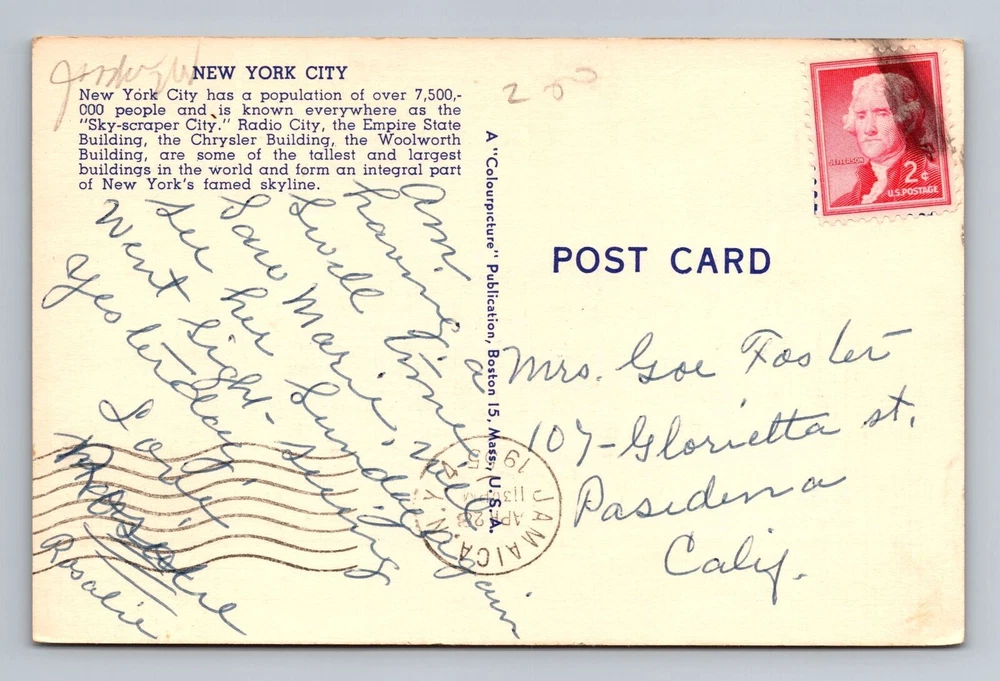 NEW YORK CITY
New York City has a population of over 7,500,-
000 people and is known everywhere as the
"Sky-scraper City." Radio City, the Empire State
Building, the Chrysler Building, the Woolworth
Building, are some of the tallest and largest
buildings in the world and form an integral part
of New York's famed skyline.
Am
having a
swell time
Saw Marie Sunday will
see her again
Went Sight-seeing
Yesterday
Love
Rosalie
Rosalie
A "Colourpicture" Publication, Boston 15, Mass., U.S.A.
200
JEFFERSON
2¢
U.S. POSTAGE
POST CARD
Mrs. Goe Foster
107-Glorietta st.
Pasidena
Calif.
JAMAICA, N.Y.
APR 28
1130 PM
19